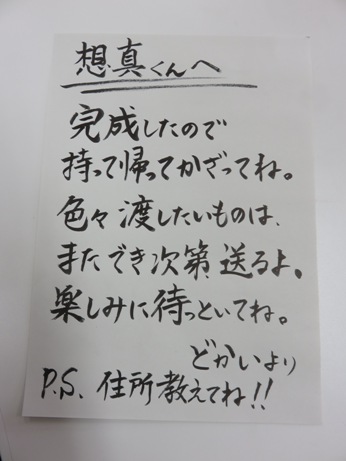 想真くんへ
完成したので
持って帰ってかざってね。
色々渡したいものは、
またでき次第、送るよ。
楽しみに待っといてね。
どかいより
P.S. 住所教えてね!!